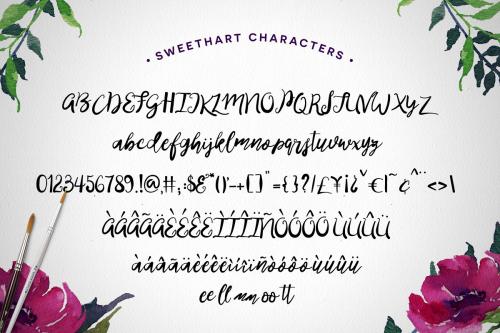 • SWEETHART CHARACTERS •
ABCDEFGHIJKLMNOPQRSTUVWXYZ
abcdefghijklmnopqrstuvwxyz
0123456789.!@,#,;:$&°*()'-+[]"={}?/£¥¡¿ˇ€|~¢^¨<>\
ÀÁÂÃÄÈÉÊËÌÍÎÏÑÒÓÔÖÙÚÛÜ
àáâãäèéêëìíîïñòóôöùúûü
ee ll mm oo tt